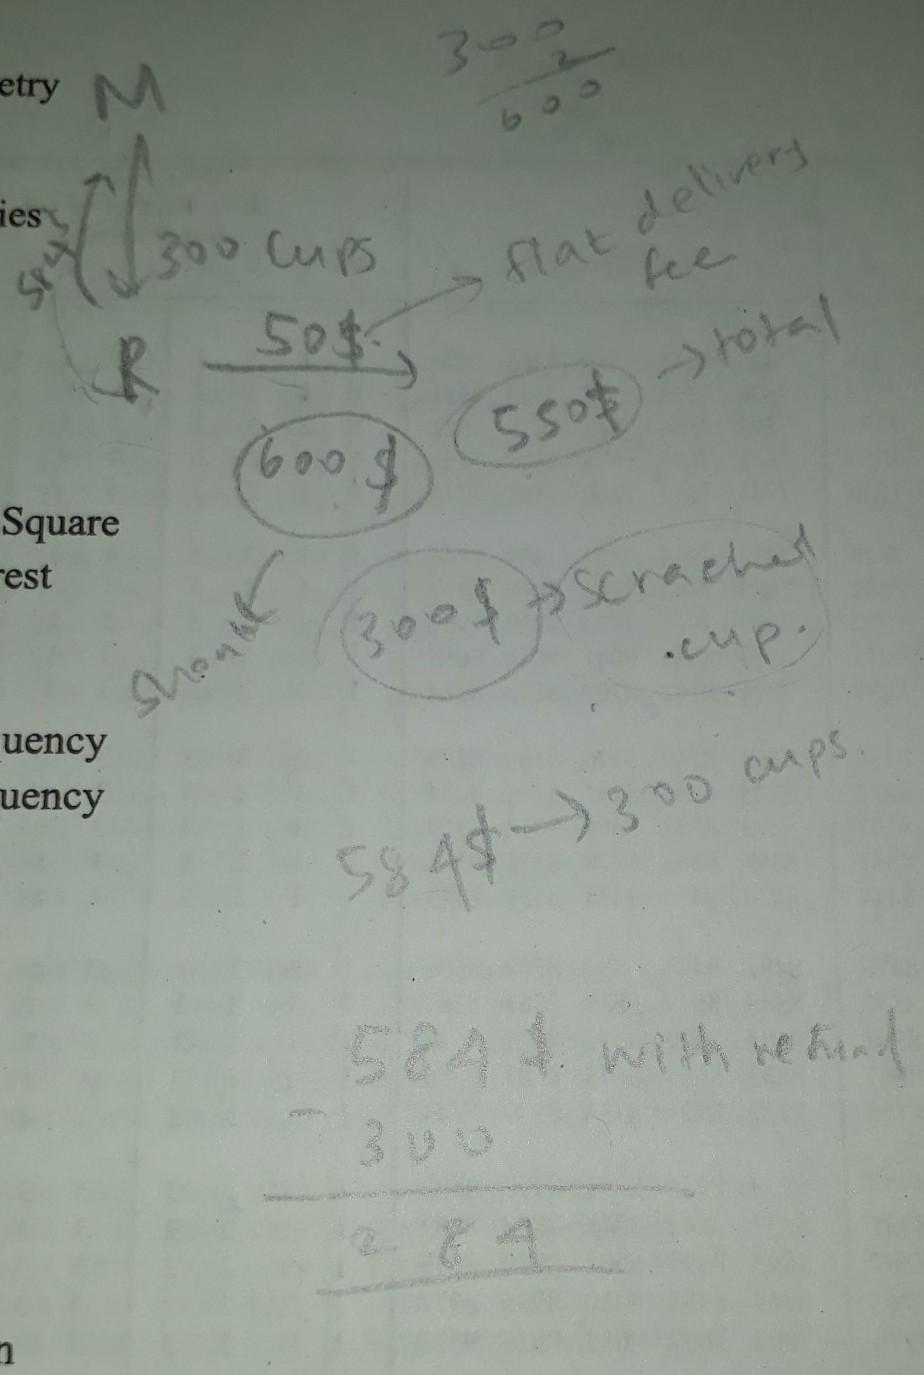 300
2
600
etry
M
flat delivery
fee
ies
300 Cups
50$
R
→ total
550$
600 $
Square
rest
300$ → scrached
.cup.
uency
uency
584$ → 300 cups.
584 $. with refund
- 300
284
n